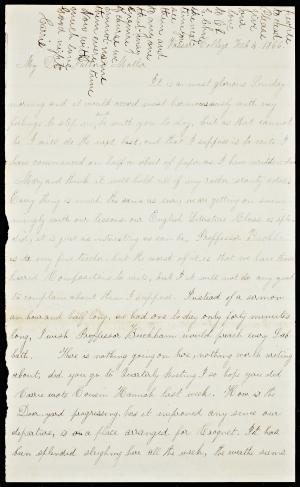 Vassar College Feb 4, 1866
My Father Mother
It is a most glorious Sunday
morning and it would accord most harmoniously with my
feelings to step in, with you to day, but as that cannot
be I will do the next best, and that I suppose is to write. I
have commenced on half a sheet of paper as I have written
Mary and think it will hold all of my
Every thing is much the same as ever, we are getting on
with our lessons our English Literature Class is splen
did, it is just as interesting as can be, Proffessor Buckham
is a very fine teacher, but the worst of it is that we have
hard Compositions to write, but I it will not do any good
to complain about them I suppose. Instead of a sermon
an hour and half long, we had one to day only forty minutes
long, I wish Professor Buckham would preach every Sab
bath. There is nothing going on here, nothing worth writing
about, did you go to Quarterly Meeting I so hope you did
Carrie wrote Cousin Hannah last week. How is the
Door yard progressing, has it improved any since our
departure, is a place arranged for Croquet. It has
been splendid sleighing here all the week, the
them and
any one
cannot
every time
Love with
much love
Good night
Carrie